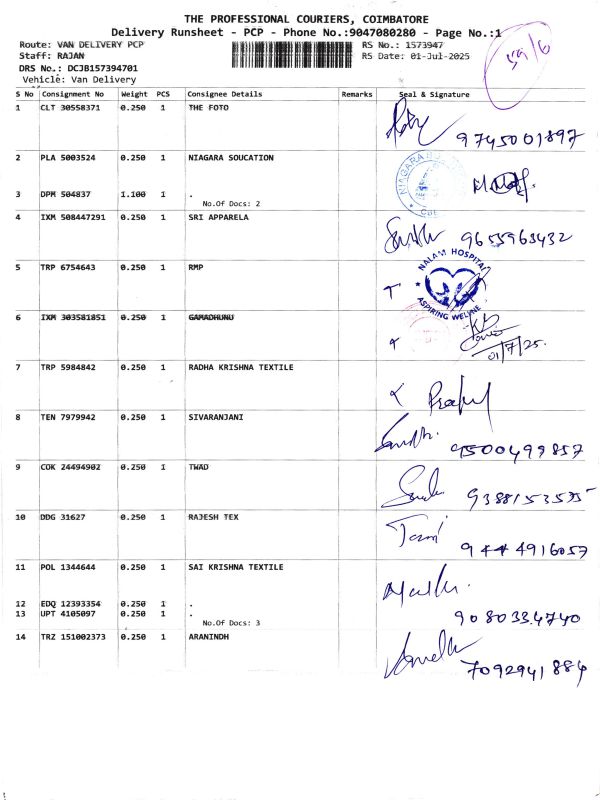 THE PROFESSIONAL COURIERS, COIMBATORE
Delivery Runsheet - PCP - Phone No.:9047080280 - Page No.:1
Route: VAN DELIVERY PCP RS No.: 1573947
Staff: RAJAN RS Date: 01-Jul-2025
DRS No.: DCJB157394701
Vehicle: Van Delivery
59/6
S No Consignment No Weight PCS Consignee Details Remarks Seal & Signature
1 CLT 30558371 0.250 1 THE FOTO
9745001897
2 PLA 5003524 0.250 1 NIAGARA SOUCATION
NIAGARA
3 DPM 504837 1.100 1 .
No.Of Docs: 2
4 IXM 508447291 0.250 1 SRI APPARELA
9655963432
NALAM HOSPITAL
5 TRP 6754643 0.250 1 RMP
ASPIRING WELLNE
6 IXM 303581851 0.250 1 GAMADHUNU
01/7/25.
7 TRP 5984842 0.250 1 RADHA KRISHNA TEXTILE
8 TEN 7979942 0.250 1 SIVARANJANI
9500499857
9 COK 24494902 0.250 1 TWAD
9388153595
10 DDG 31627 0.250 1 RAJESH TEX
9444916057
11 POL 1344644 0.250 1 SAI KRISHNA TEXTILE
12 EDQ 12393354 0.250 1 .
13 UPT 4105097 0.250 1 .
No.Of Docs: 3
9080334740
14 TRZ 151002373 0.250 1 ARANINDH
7092941884